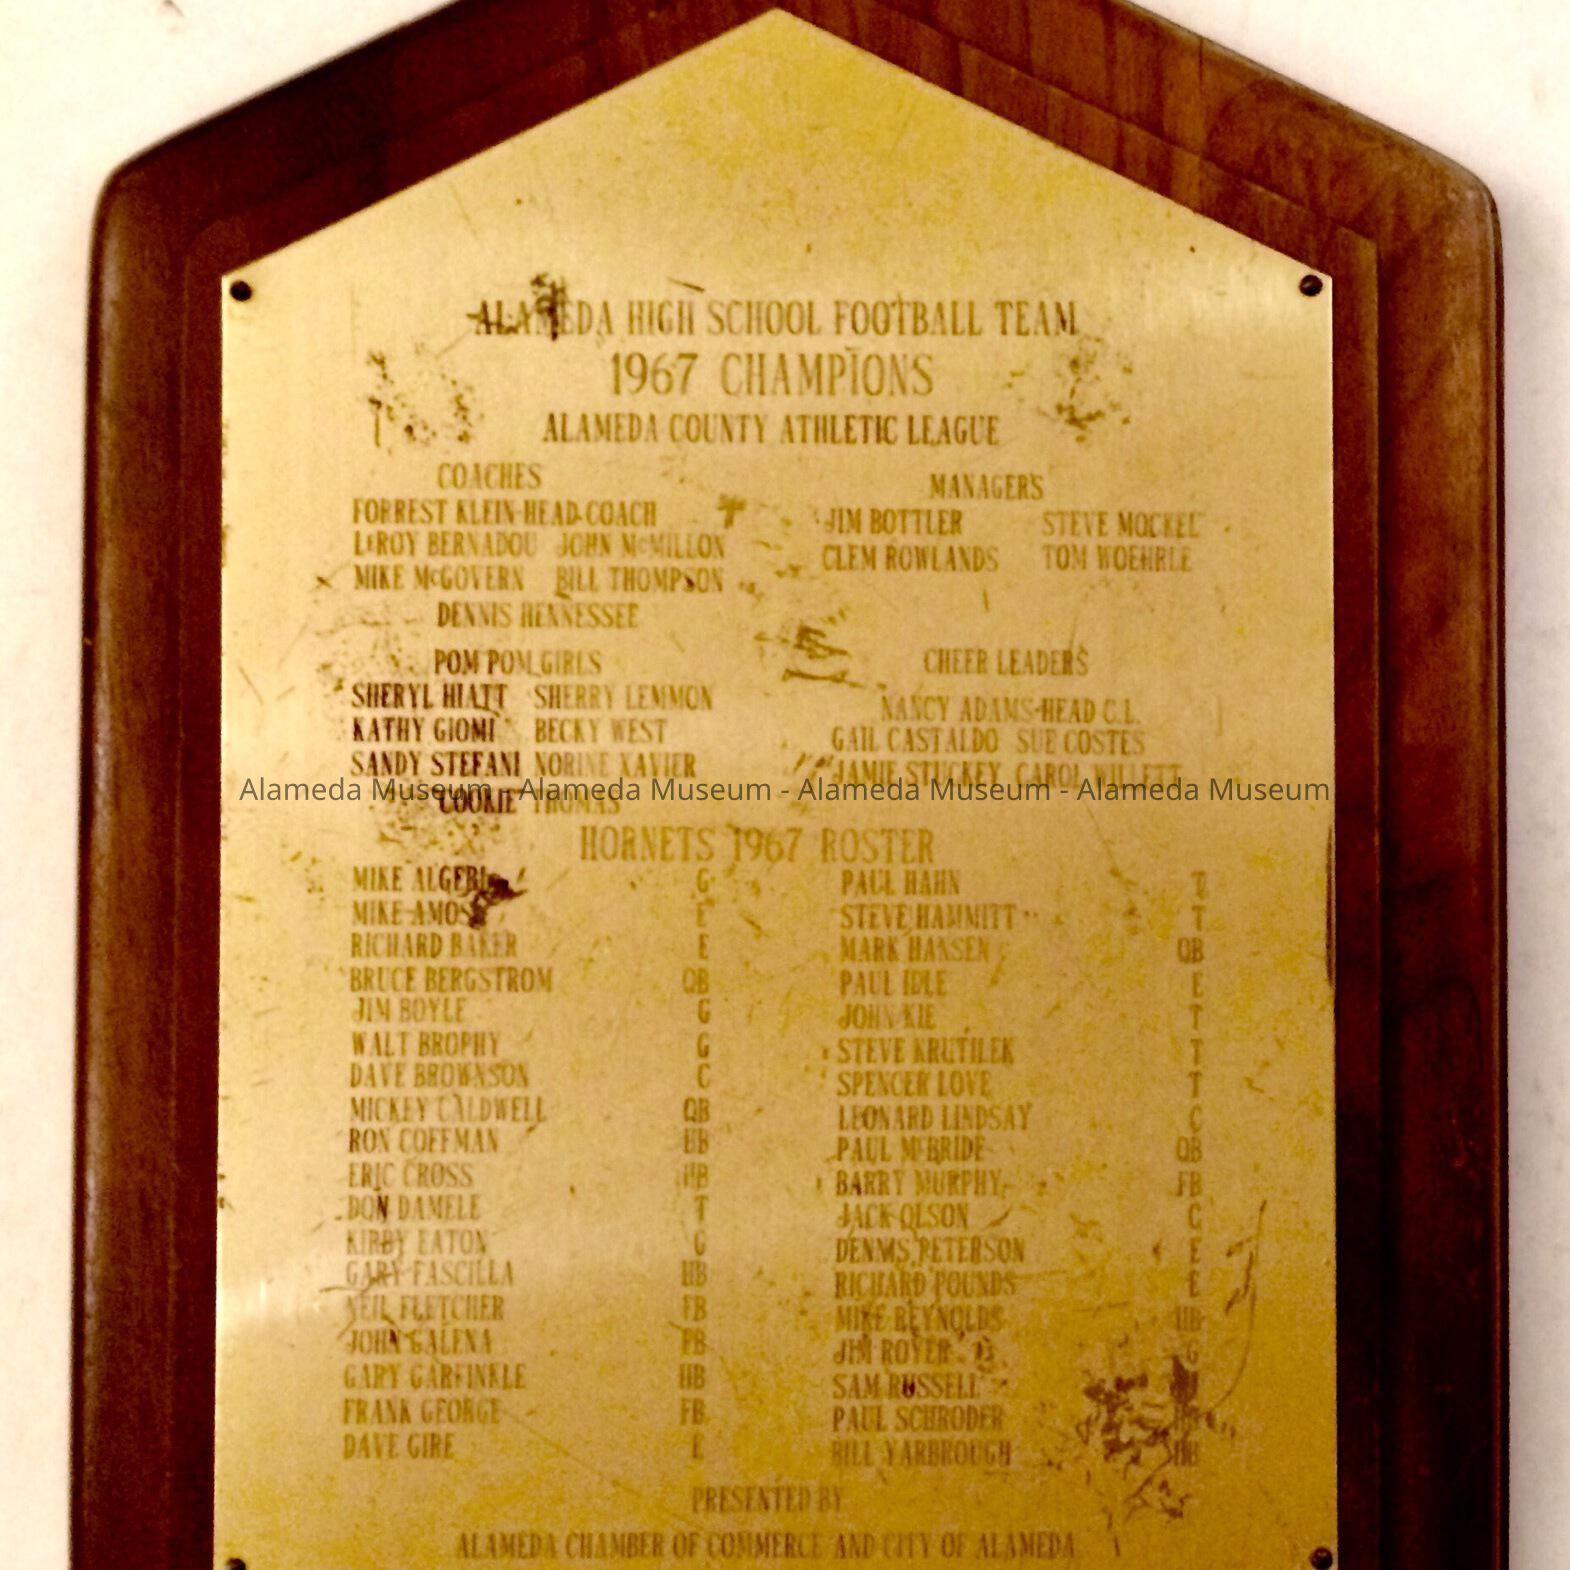 ALAMEDA HIGH SCHOOL FOOTBALL TEAM
1967 CHAMPIONS
ALAMEDA COUNTY ATHLETIC LEAGUE
COACHES
FORREST KLEIN-HEAD COACH
LeROY BERNADOU JOHN McMILLON
MIKE McGOVERN BILL THOMPSON
DENNIS HENNESSEE
MANAGERS
JIM BOTTLER STEVE MOCKEL
CLEM ROWLANDS TOM WOEHRLE
POM POM GIRLS
SHERYL HIATT SHERRY LEMMON
KATHY GIOMI BECKY WEST
SANDY STEFANI NORINE XAVIER
COOKIE THOMAS
CHEER LEADERS
NANCY ADAMS-HEAD C.L.
GAIL CASTALDO SUE COSTES
JAMIE STUCKEY CAROL WILLETT
Alameda Museum - Alameda Museum - Alameda Museum - Alameda Museum
HORNETS 1967 ROSTER
MIKE ALGERI G
MIKE AMOS E
RICHARD BAKER E
BRUCE BERGSTROM QB
JIM BOYLE G
WALT BROPHY G
DAVE BROWNSON C
MICKEY CALDWELL QB
RON COFFMAN HB
ERIC CROSS HB
DON DAMELE T
KIRBY EATON G
GARY FASCILLA HB
NEIL FLETCHER FB
JOHN GALENA FB
GARY GARFINKLE HB
FRANK GEORGE FB
DAVE GIRE E
PAUL HAHN T
STEVE HAMMITT T
MARK HANSEN QB
PAUL IDLE E
JOHN KIE T
STEVE KRUTILEK T
SPENCER LOVE T
LEONARD LINDSAY C
PAUL McBRIDE QB
BARRY MURPHY FB
JACK OLSON C
DENNIS PETERSON E
RICHARD POUNDS E
MIKE REYNOLDS HB
JIM ROYER G
SAM RUSSELL
PAUL SCHRODER
BILL YARBROUGH HB
PRESENTED BY
ALAMEDA CHAMBER OF COMMERCE AND CITY OF ALAMEDA